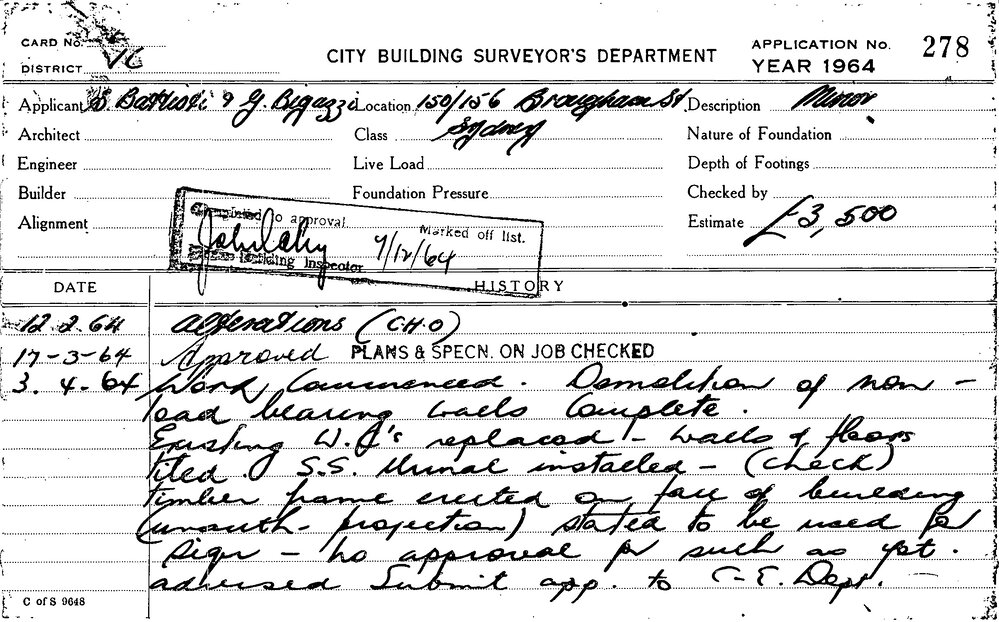 CARD No.
DISTRICT VC
CITY BUILDING SURVEYOR'S DEPARTMENT
APPLICATION No. 278
YEAR 1964
Applicant S. Battisti & G. Bigazzi Location 150/156 Brougham St Description Minor
Architect Class Sydney Nature of Foundation
Engineer Live Load Depth of Footings
Builder Foundation Pressure Checked by
Alignment Estimate £3,500
Completed to approval.
Marked off list.
7/12/64
Building Inspector
DATE HISTORY
12.2.64 Alterations (C.H.O)
17-3-64 Approved PLANS & SPECN. ON JOB CHECKED
3.4.64 Work Commenced. Demolition of non-
load bearing walls Complete.
Existing W.C's replaced - walls & floors
tiled. S.S. Urinal installed - (check)
timber frame erected on face of building
(unauth. projection) stated to be used for
sign - no approval for such as yet.
advised Submit app. to C.E. Dept.
C of S 9648